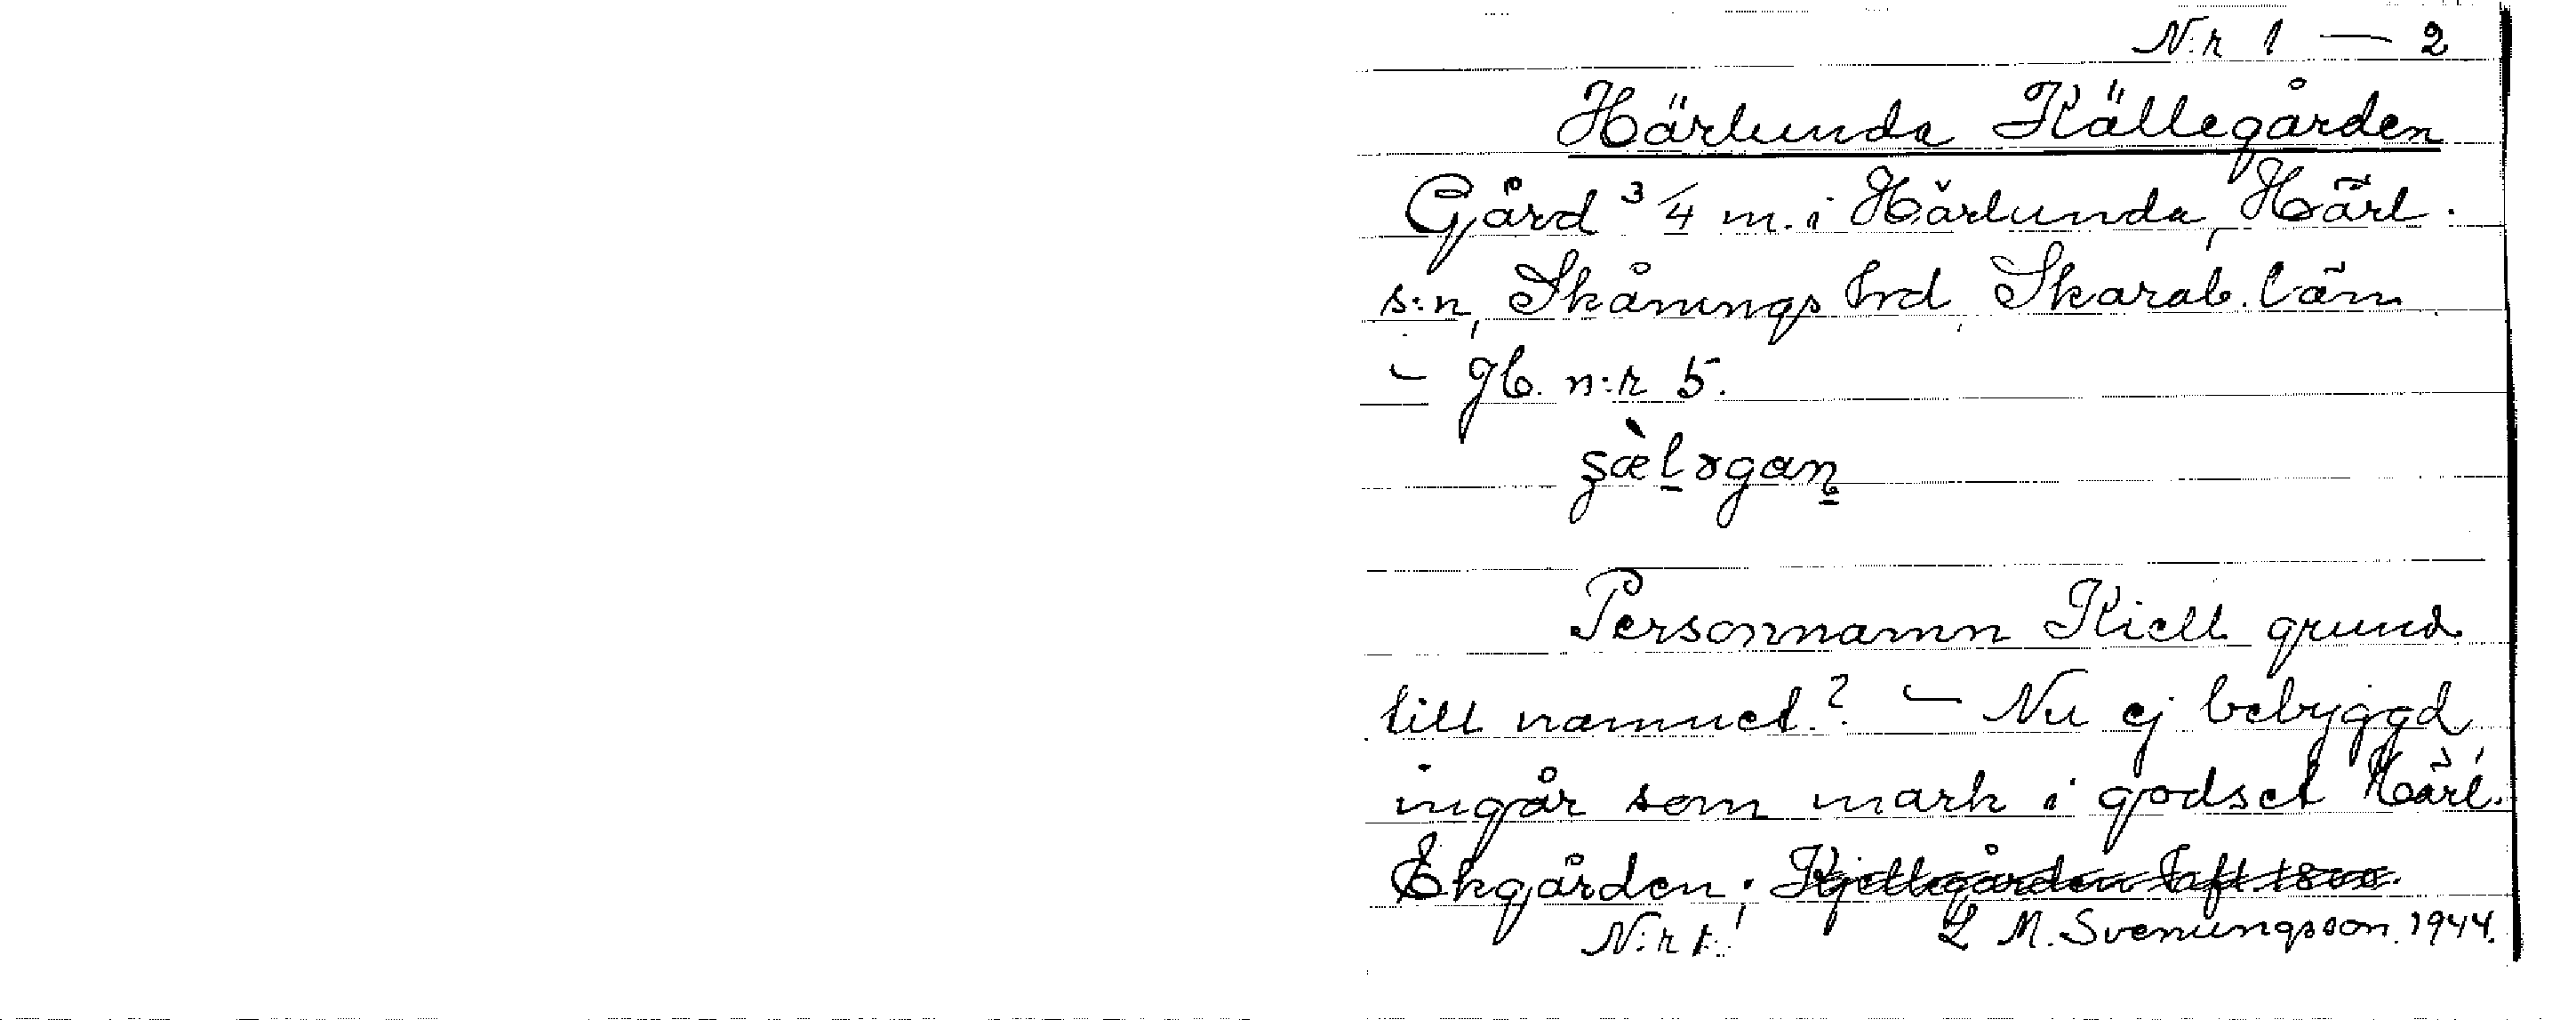 N:r 1 — 2
Härlunda Källegården
Gård 3/4 m. i Härlunda, Härl.
s:n, Skånings hrd, Skarab. län
— gb. n:r 5.
Personnamn Kiell grund
till namnet? — Nu ej bebyggd,
ingår som mark i godset Härl.
Ekgården;
N:r 1. L M. Svenungsson. 1944.